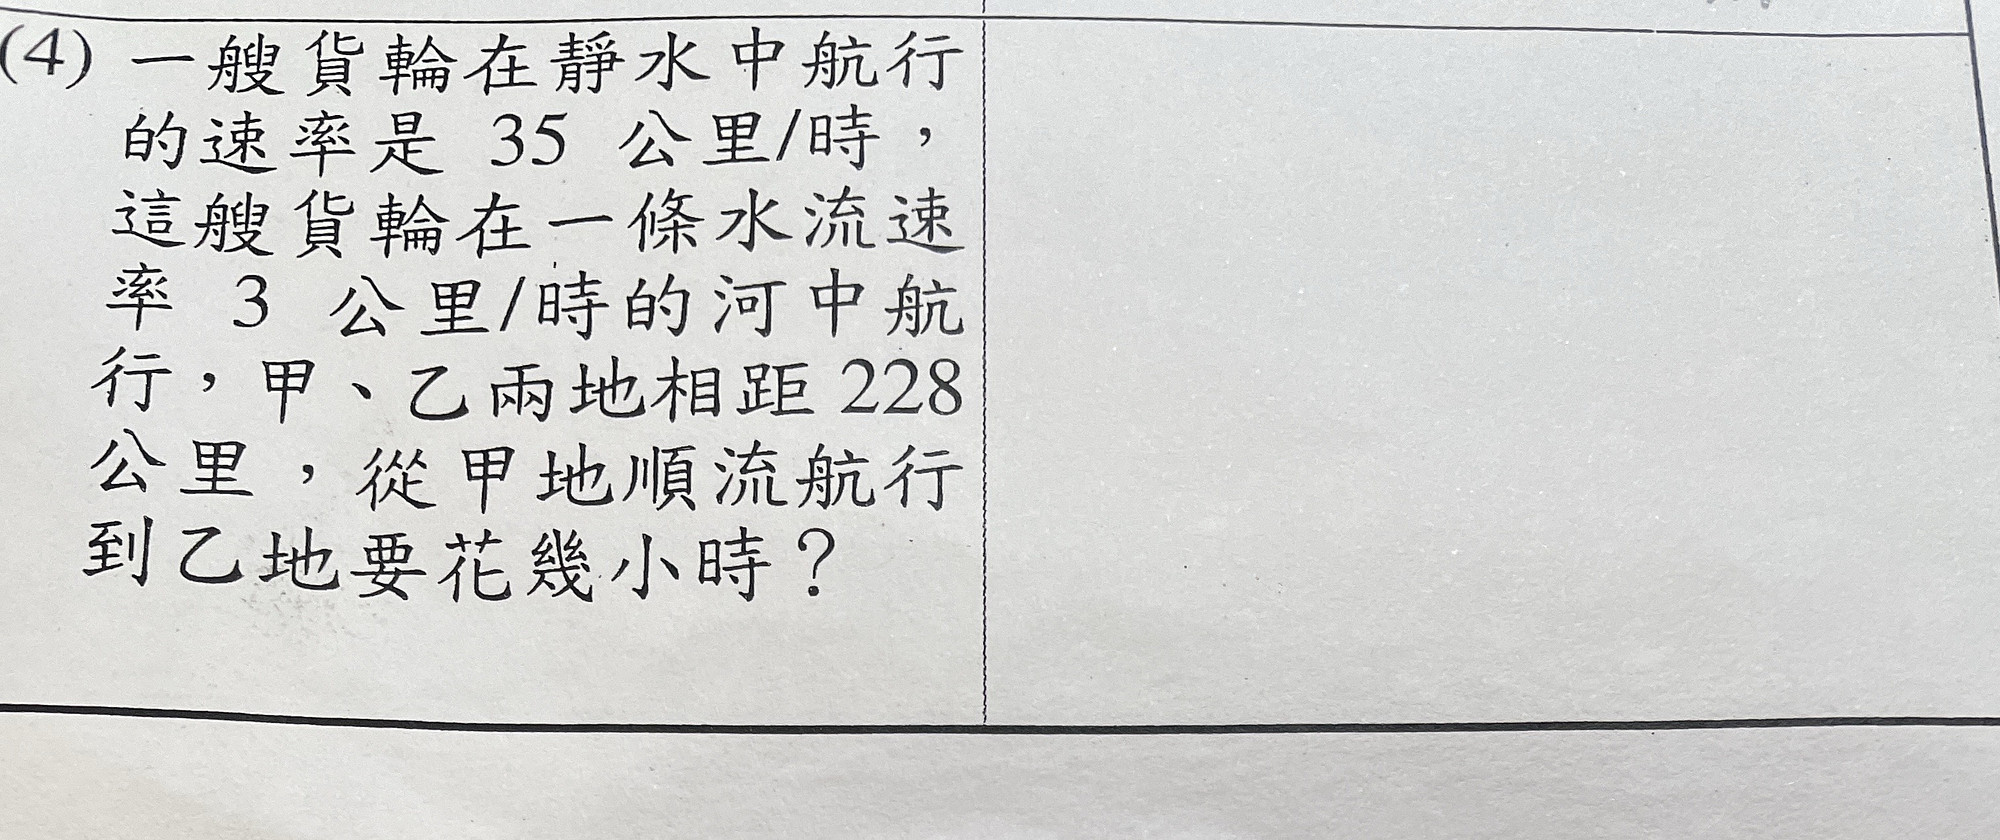 (4) 一艘貨輪在靜水中航行
的速率是 35 公里/時，
這艘貨輪在一條水流速
率 3 公里/時的河中航
行，甲、乙兩地相距 228
公里，從甲地順流航行
到乙地要花幾小時？